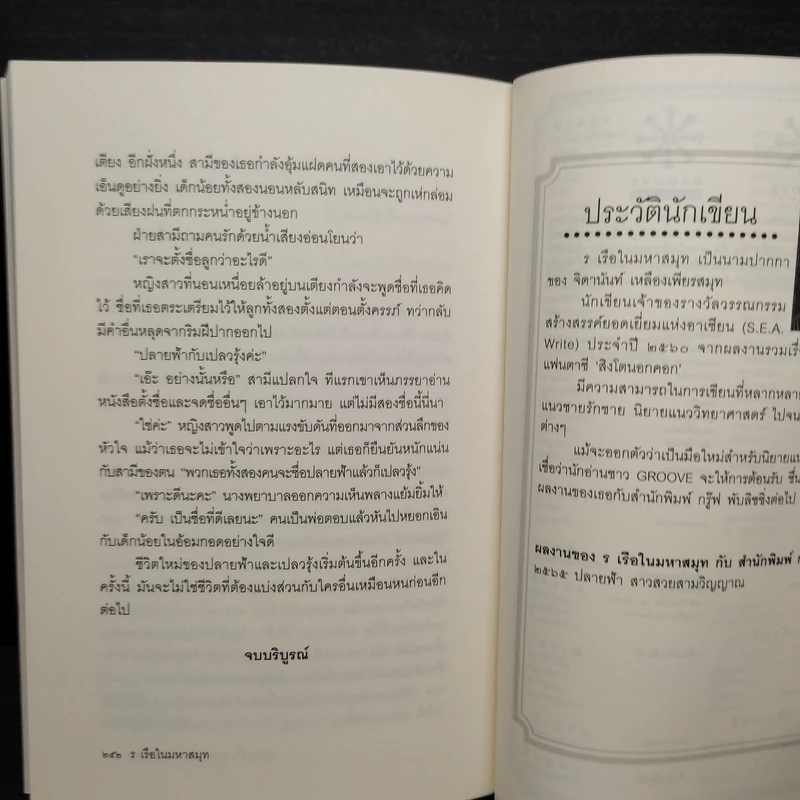 เตียง อีกฝั่งหนึ่ง สามีของเธอกำลังอุ้มแฝดคนที่สองเอาไว้ด้วยความ
เอ็นดูอย่างยิ่ง เด็กน้อยทั้งสองนอนหลับสนิท เหมือนจะถูกเห่กล่อม
ด้วยเสียงฝนที่ตกกระหน่ำอยู่ข้างนอก
ฝ่ายสามีถามคนรักด้วยน้ำเสียงอ่อนโยนว่า
“เราจะตั้งชื่อลูกว่าอะไรดี”
หญิงสาวที่นอนเหนื่อยล้าอยู่บนเตียงกำลังจะพูดชื่อที่เธอคิด
ไว้ ชื่อที่เธอตระเตรียมไว้ให้ลูกทั้งสองตั้งแต่ตอนตั้งครรภ์ ทว่ากลับ
มีคำอื่นหลุดจากริมฝีปากออกไป
“ปลายฟ้ากับเปลวรุ้งค่ะ”
“เอ๊ะ อย่างนั้นหรือ” สามีแปลกใจ ทีแรกเขาเห็นภรรยาอ่าน
หนังสือตั้งชื่อและจดชื่ออื่นๆ เอาไว้มากมาย แต่ไม่มีสองชื่อนี้นี่นา
“ใช่ค่ะ” หญิงสาวพูดไปตามแรงขับดันที่ออกมาจากส่วนลึกของ
หัวใจ แม้ว่าเธอจะไม่เข้าใจว่าเพราะอะไร แต่เธอก็ยืนยันหนักแน่น
กับสามีของตน “พวกเธอทั้งสองคนจะชื่อปลายฟ้าแล้วก็เปลวรุ้ง”
“เพราะดีนะคะ” นางพยาบาลออกความเห็นพลางแย้มยิ้มให้
“ครับ เป็นชื่อที่ดีเลยนะ” คนเป็นพ่อตอบแล้วหันไปหยอกเอิน
กับเด็กน้อยในอ้อมกอดอย่างใจดี
ชีวิตใหม่ของปลายฟ้าและเปลวรุ้งเริ่มต้นขึ้นอีกครั้ง และใน
ครั้งนี้ มันจะไม่ใช่ชีวิตที่ต้องแบ่งส่วนกับใครอื่นเหมือนหนก่อนอีก
ต่อไป
จบบริบูรณ์
๒๕๒ ร เรือในมหาสมุท
ประวัตินักเขียน
ร เรือในมหาสมุท เป็นนามปากกา
ของ จิดานันท์ เหลืองเพียรสมุท
นักเขียนเจ้าของรางวัลวรรณกรรม
สร้างสรรค์ยอดเยี่ยมแห่งอาเซียน (S.E.A.
Write) ประจำปี ๒๕๖๐ จากผลงานรวมเรื่
แฟนตาซี ‘สิงโตนอกคอก’
มีความสามารถในการเขียนที่หลากหลาย
แนวชายรักชาย นิยายแนววิทยาศาสตร์ ไปจน
ต่างๆ
แม้จะออกตัวว่าเป็นมือใหม่สำหรับนิยายแน
เชื่อว่านักอ่านชาว GROOVE จะให้การต้อนรับ ชื่น
ผลงานของเธอกับสำนักพิมพ์ กรู๊ฟ พับลิชชิ่งต่อไป
ผลงานของ ร เรือในมหาสมุท กับ สำนักพิมพ์
๒๕๖๕ ปลายฟ้า สาวสวยสามวิญญาณ